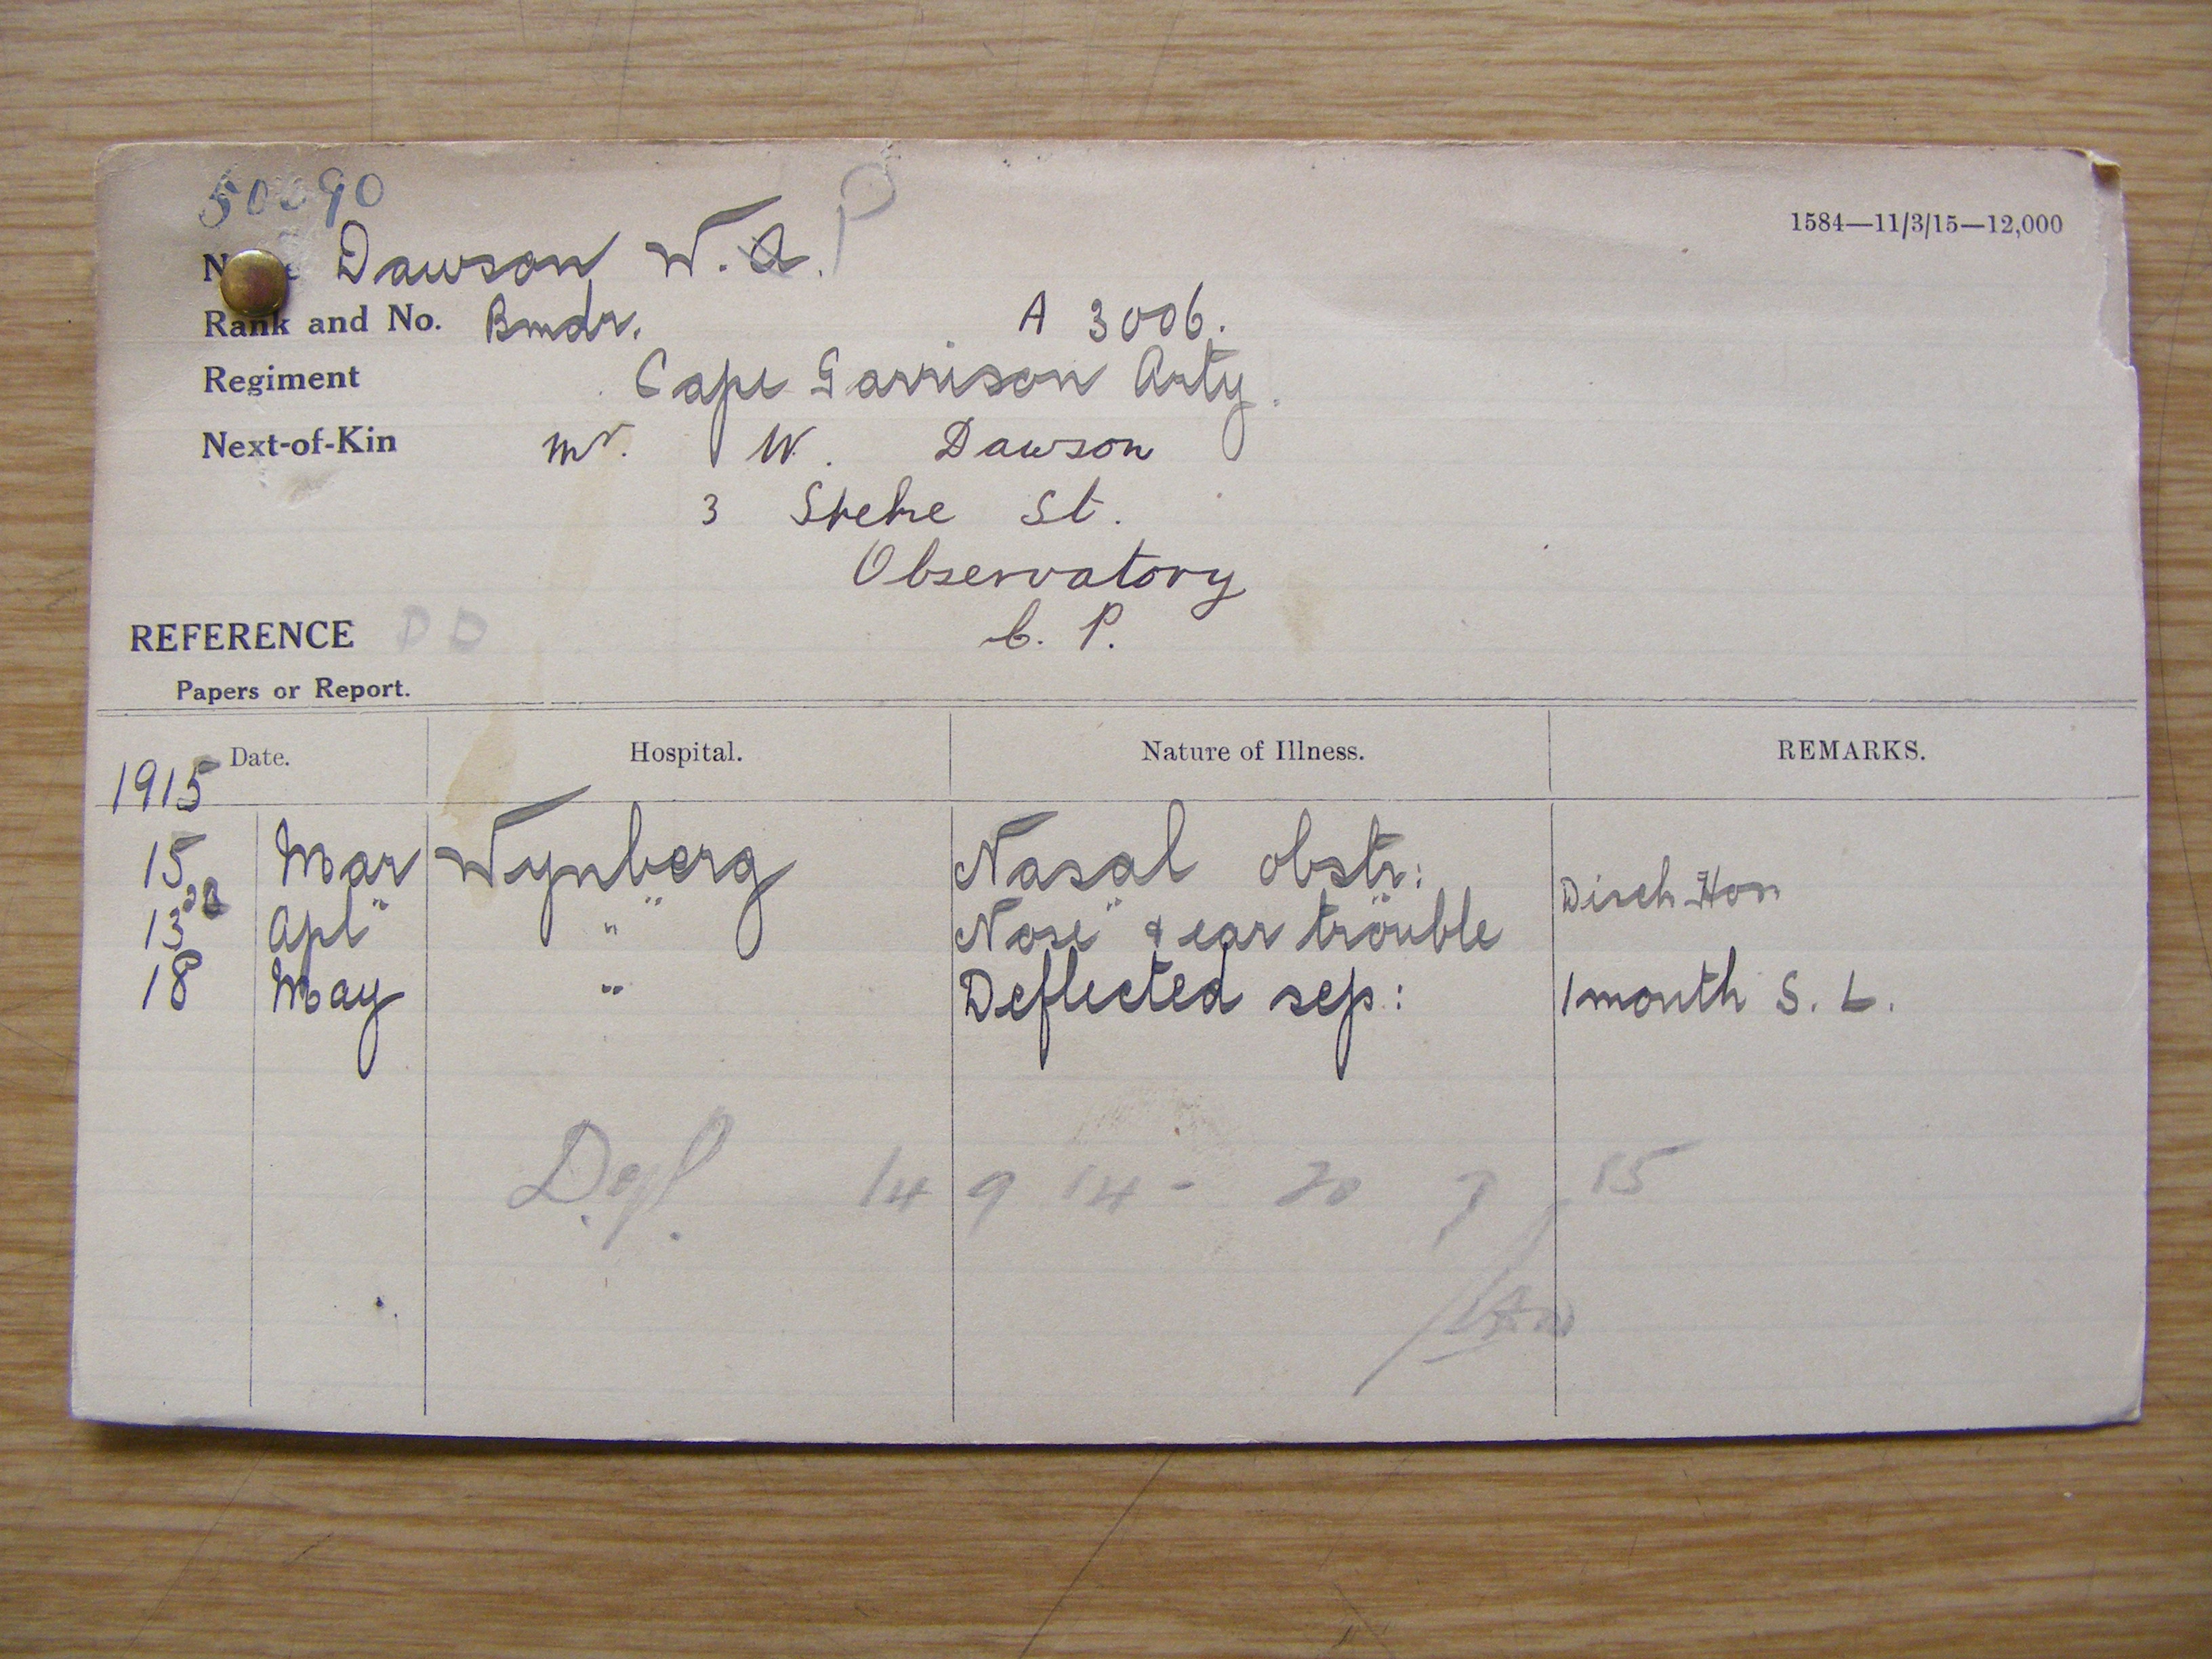 1584—11/3/15—12,000
Dawson W. A. P
Rank and No. Bmdr. A 3006.
Regiment Cape Garrison Arty.
Next-of-Kin Mr. W. Dawson
3 Speke St.
Observatory
C. P.
REFERENCE D D
Papers or Report.
Date. Hospital. Nature of Illness. REMARKS.
1915
15 Mar Wynberg Nasal obstr:
" " " " Disch Hosp
13 Apl " Nose & ear trouble
18 May " Deflected sep: 1 month S. L.
14 9 14 - 20 7 15